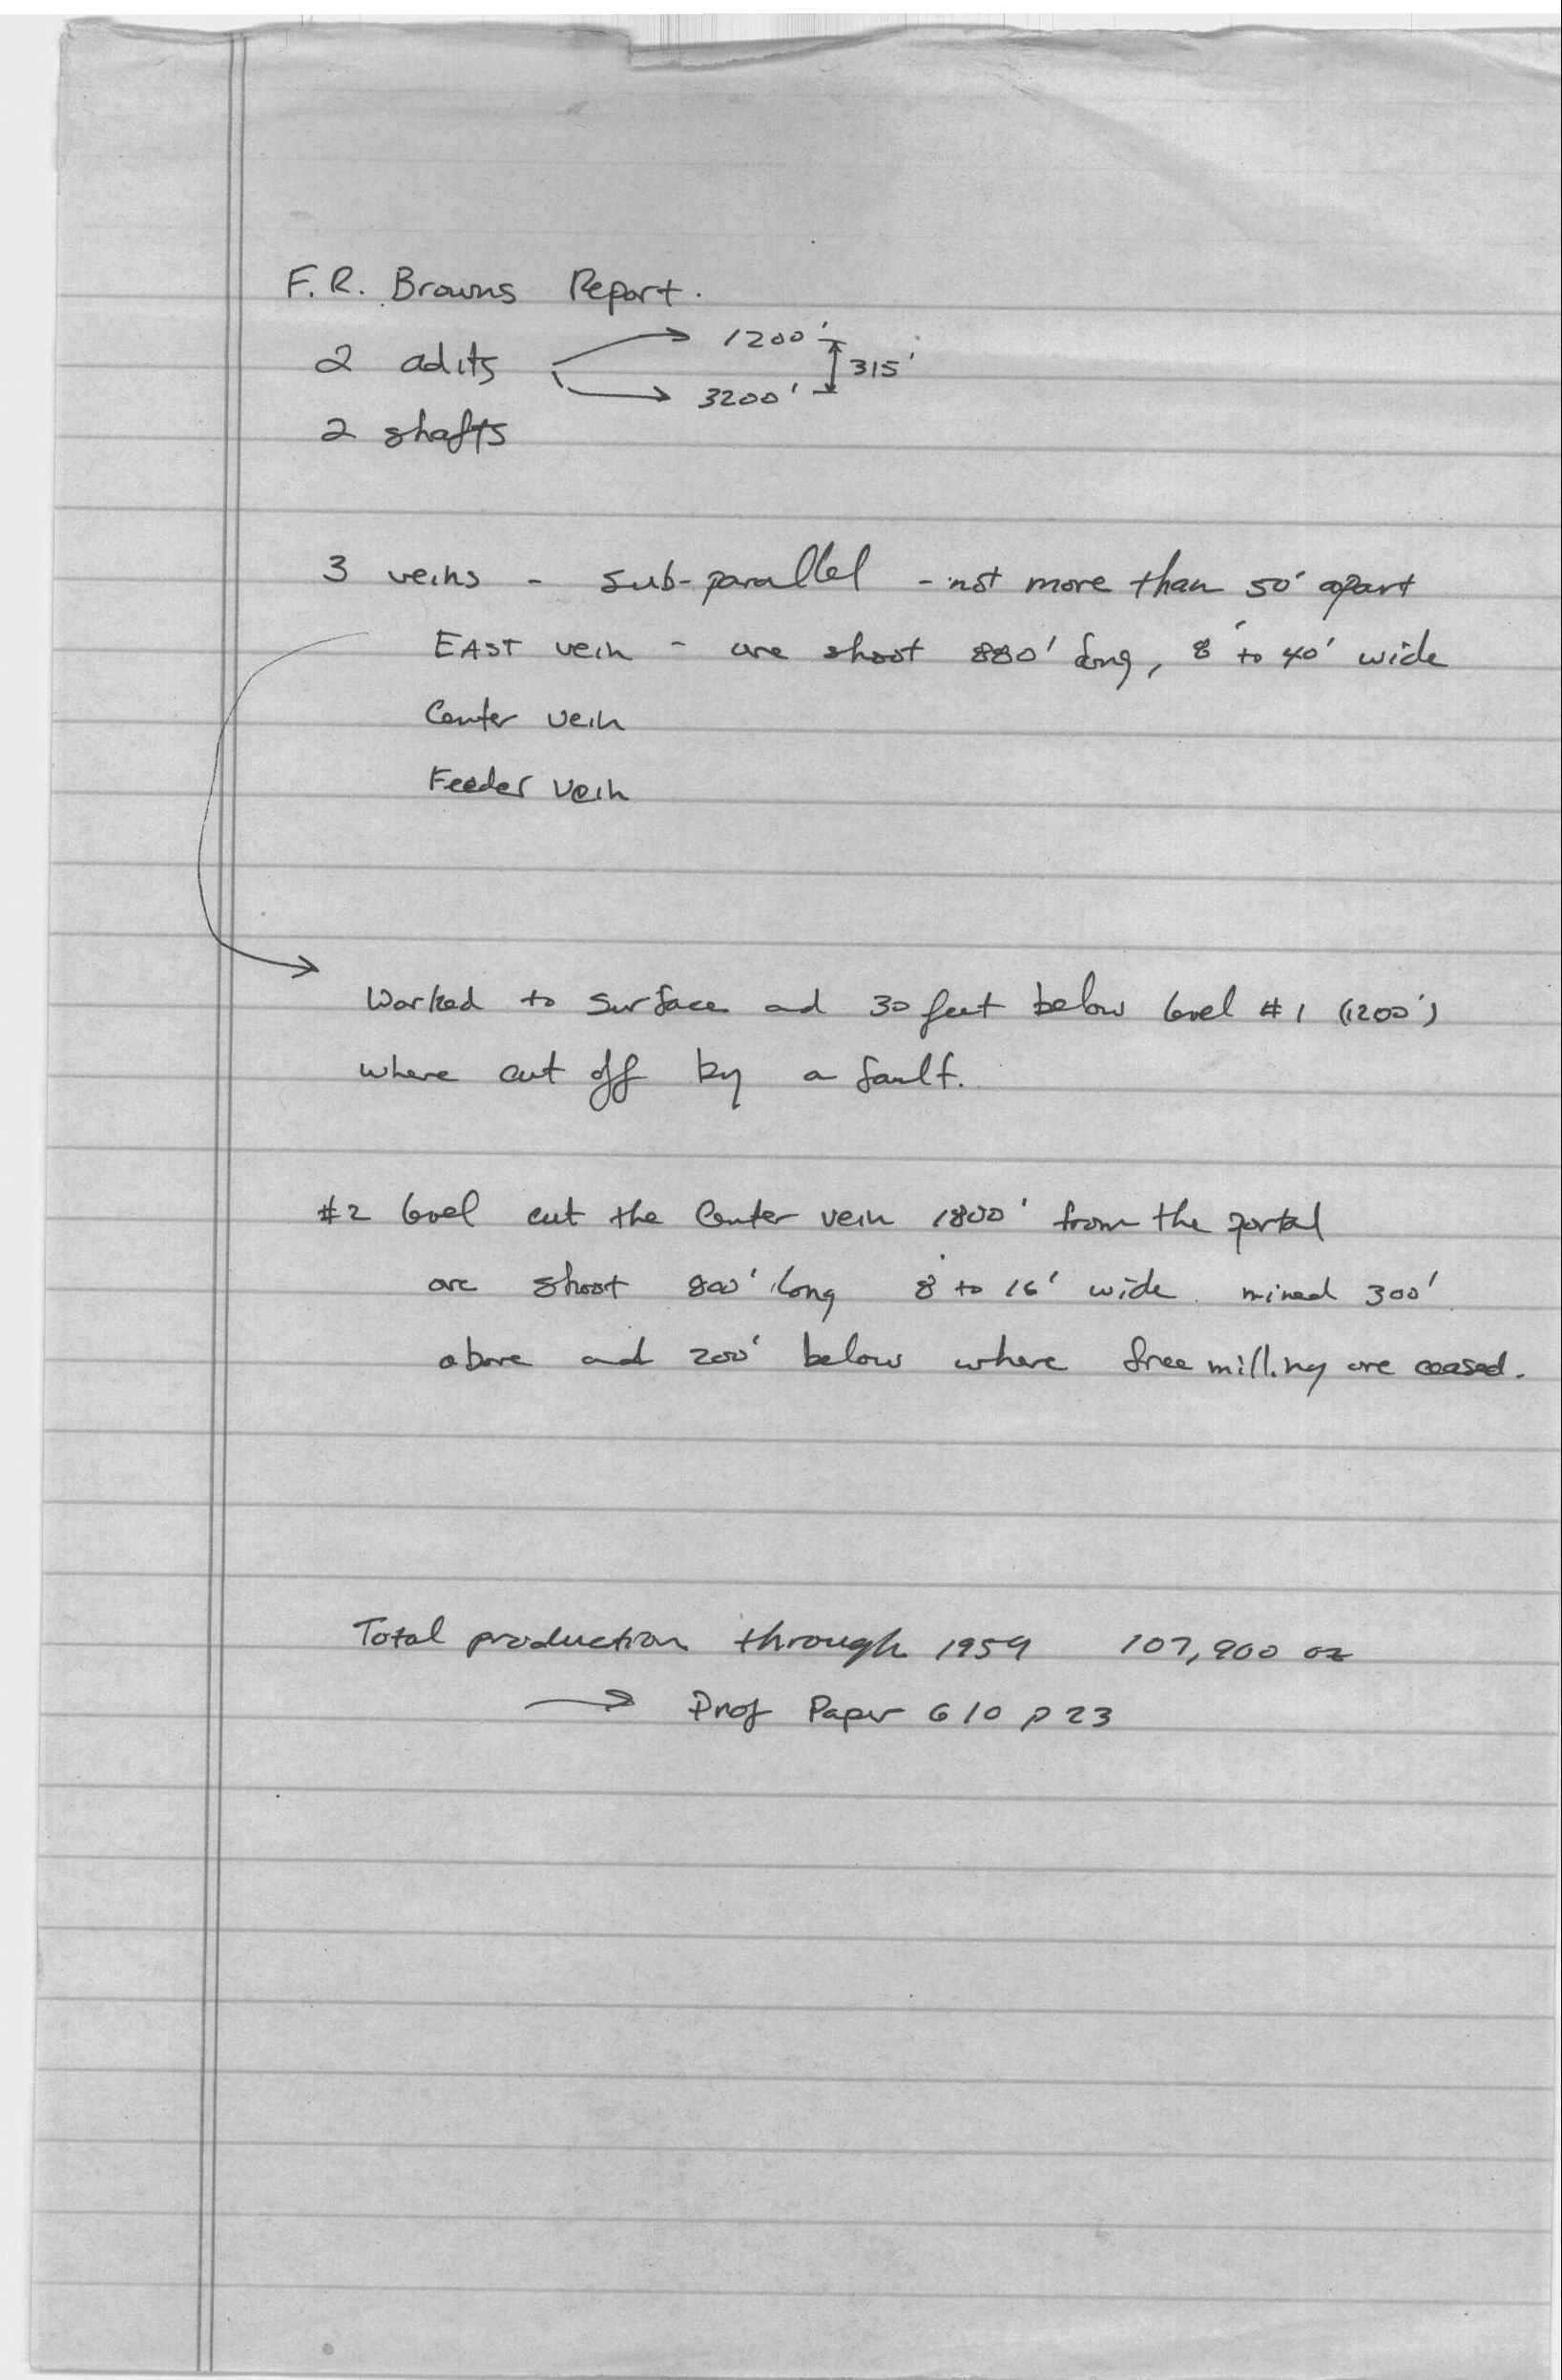 F.R. Browns Report.
2 adits → 1200' 315'
→ 3200'
2 shafts
3 veins - sub-parallel - not more than 50' apart
EAST vein - ore shoot 880' long, 8' to 40' wide
Center vein
Feeder vein
→ Worked to surface and 30 feet below level #1 (1200')
where cut off by a fault.
#2 level cut the Center vein 1800' from the portal
ore shoot 800' long 8' to 16' wide. mined 300'
above and 200' below where free milling ore ceased.
Total production through 1959 107,900 oz
→ Prof Paper 610 p 23